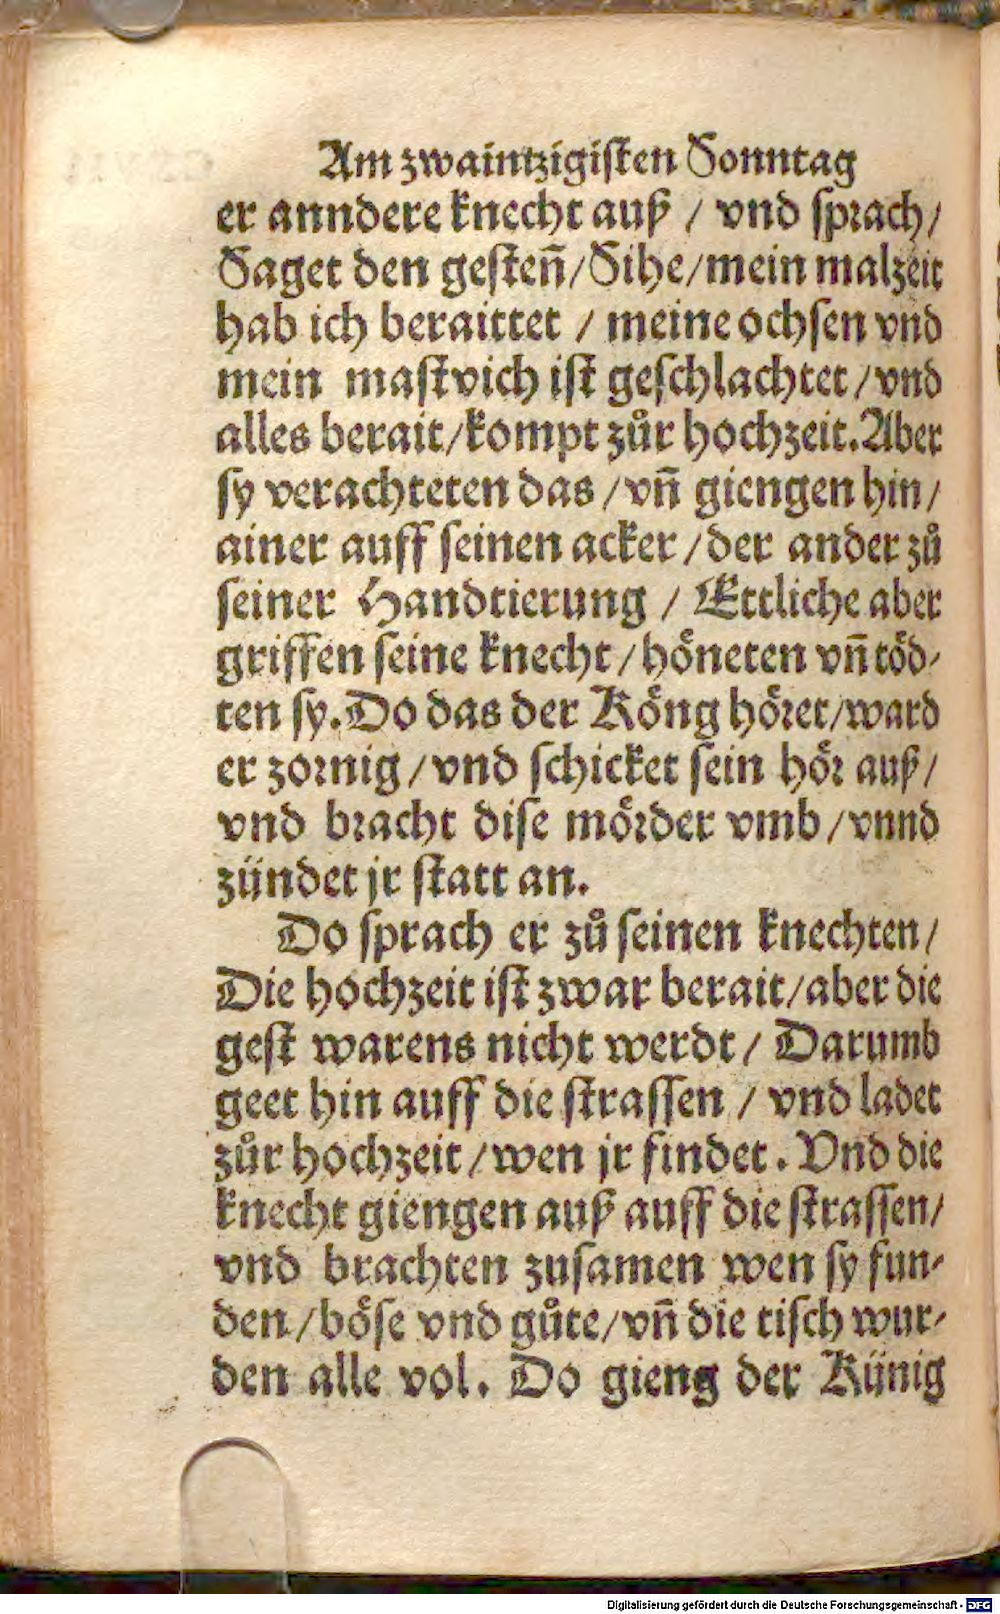 Am zwaintzigisten Sonntag
er anndere knecht auß / vnd sprach /
Saget den gesten̄ / Sihe / mein malzeit
hab ich beraittet / meine ochsen vnd
mein mastvich ist geschlachtet / vnd
alles berait / kompt zůr hochzeit. Aber
sy verachteten das / vn̄ giengen hin /
ainer auff seinen acker / der ander zů
seiner Handtierung / Ettliche aber
griffen seine knecht / hoͤneten vn̄ toͤd-
ten sy. Do das der Koͤng hoͤret / ward
er zornig / vnd schicket sein hoͤr auß /
vnd bracht dise moͤrder vmb / vnnd
zündet jr statt an.
Do sprach er zů seinen knechten /
Die hochzeit ist zwar berait / aber die
gest warens nicht werdt / Darumb
geet hin auff die strassen / vnd ladet
zůr hochzeit / wen jr findet. Vnd die
knecht giengen auß auff die strassen /
vnd brachten zusamen wen sy fun-
den / boͤse vnd gůte / vn̄ die tisch wur-
den alle vol. Do gieng der Künig
Digitalisierung gefördert durch die Deutsche Forschungsgemeinschaft - DFG